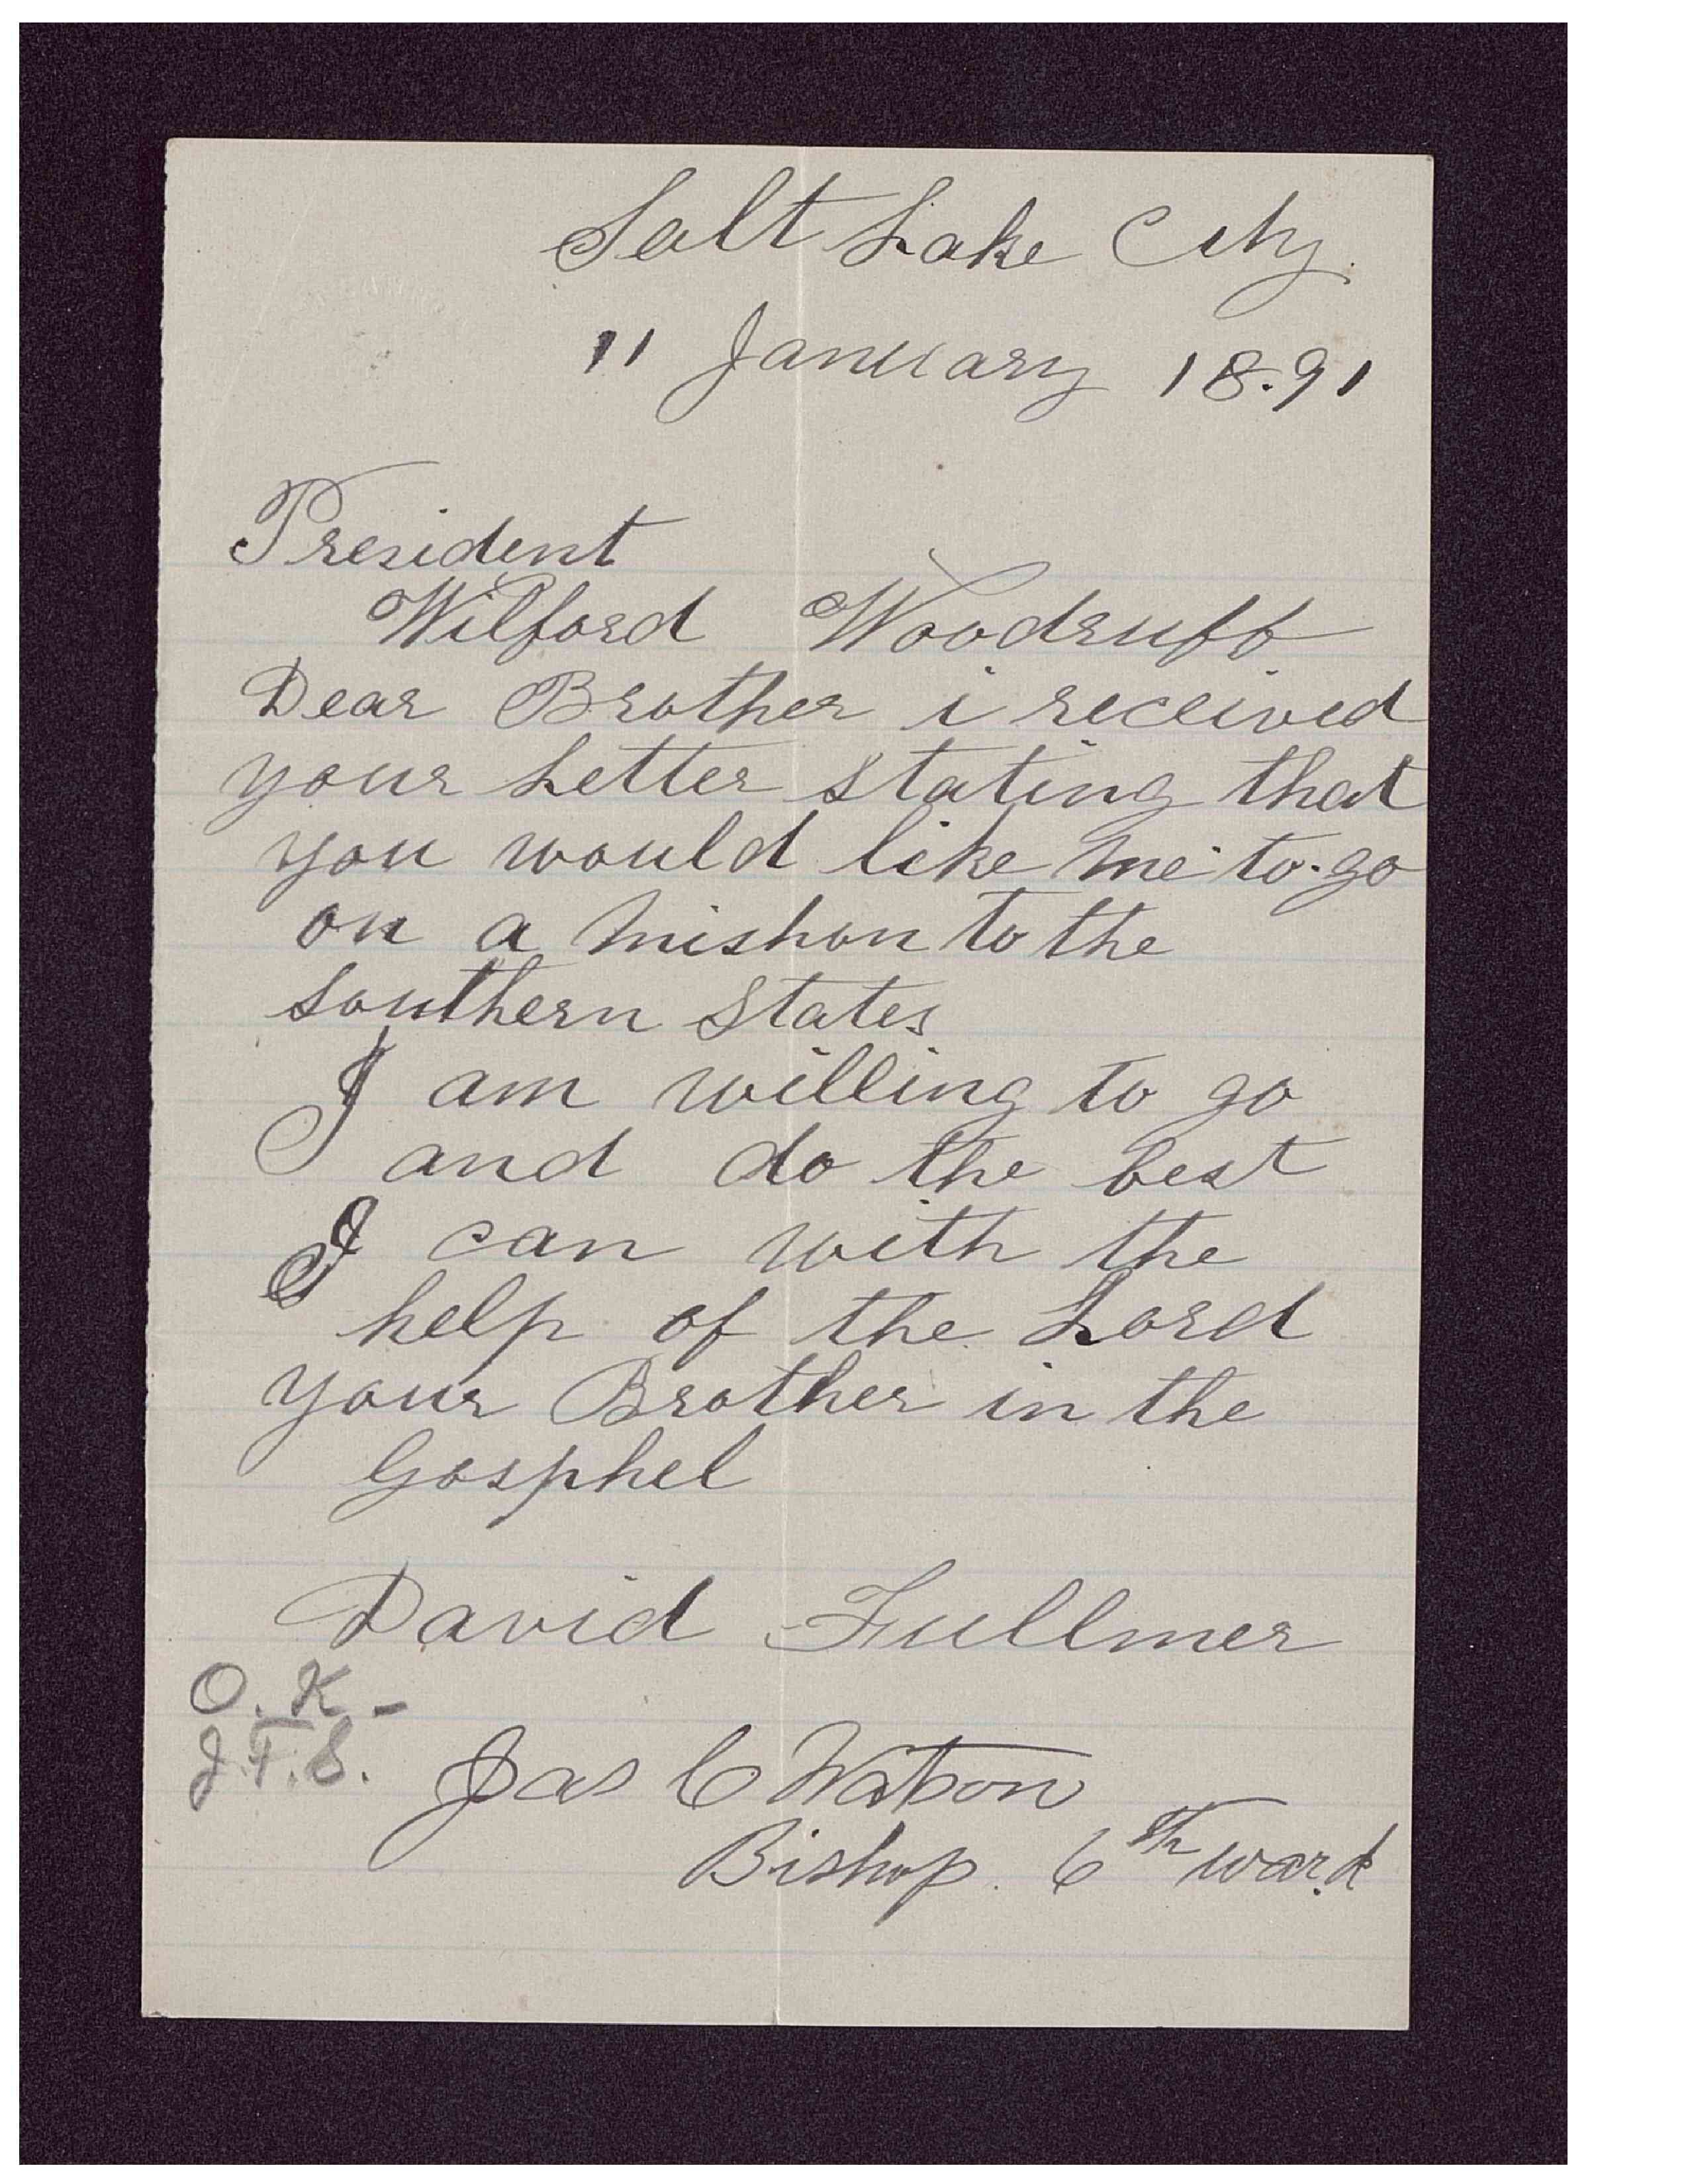 Salt Lake City
11 January 18.91
President
Wilford Woodruff
Dear Brother i received
your Letter stating that
you would like me to go
on a mishon to the
southern States
I am willing to go
and do the best
I can with the
help of the Lord
your Brother in the
Gosphel
David Fullmer
O. K. -
J.F.S.
Jas C Watson
Bishop. 6th ward